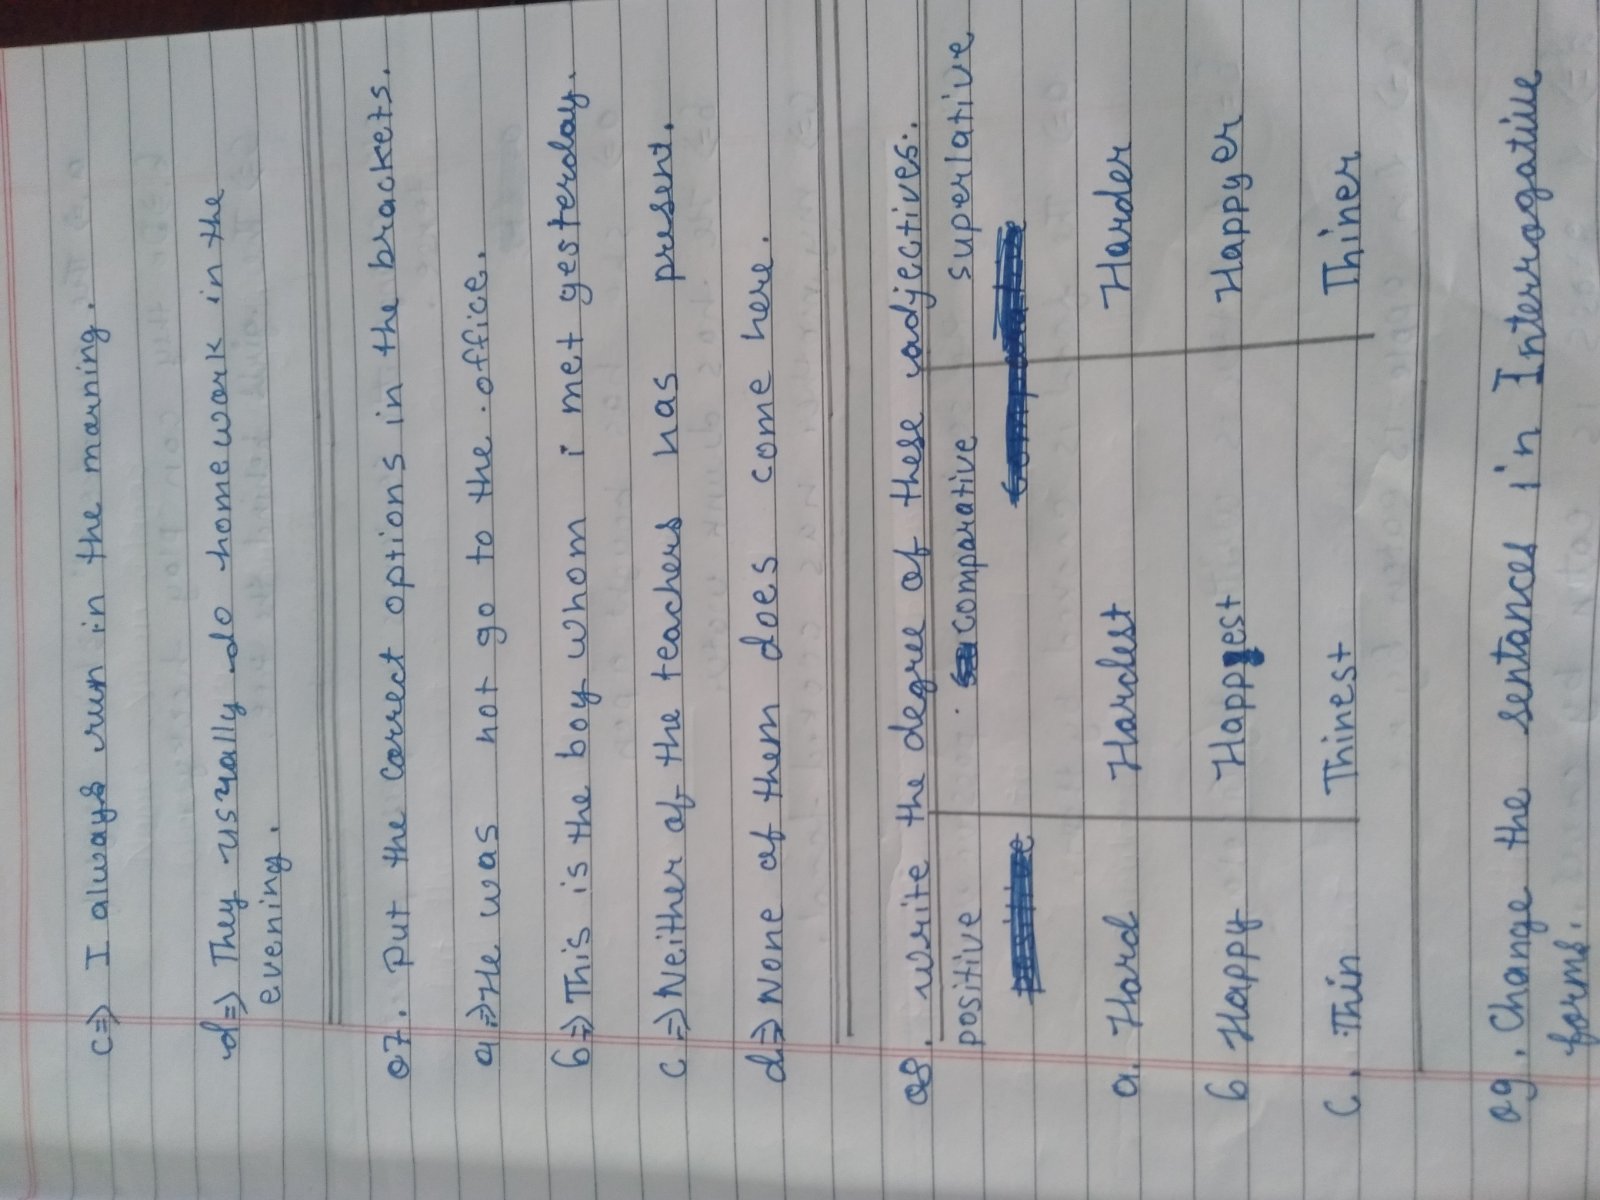 c⇒ I always run in the morning.
d⇒ They usually do homework in the
evening.
Q7. Put the correct options in the brackets.
a⇒ He was not go to the office.
b⇒ This is the boy whom i met yesterday.
c⇒ Neither of the teachers has present.
d⇒ None of them does come here.
Q8. write the degree of these adjectives.
positive comparative superlative
a. Hard Hardest Harder
b Happy Happyest Happyer
c. Thin Thinest Thiner
Q9. Change the sentances in Interrogative
forms.